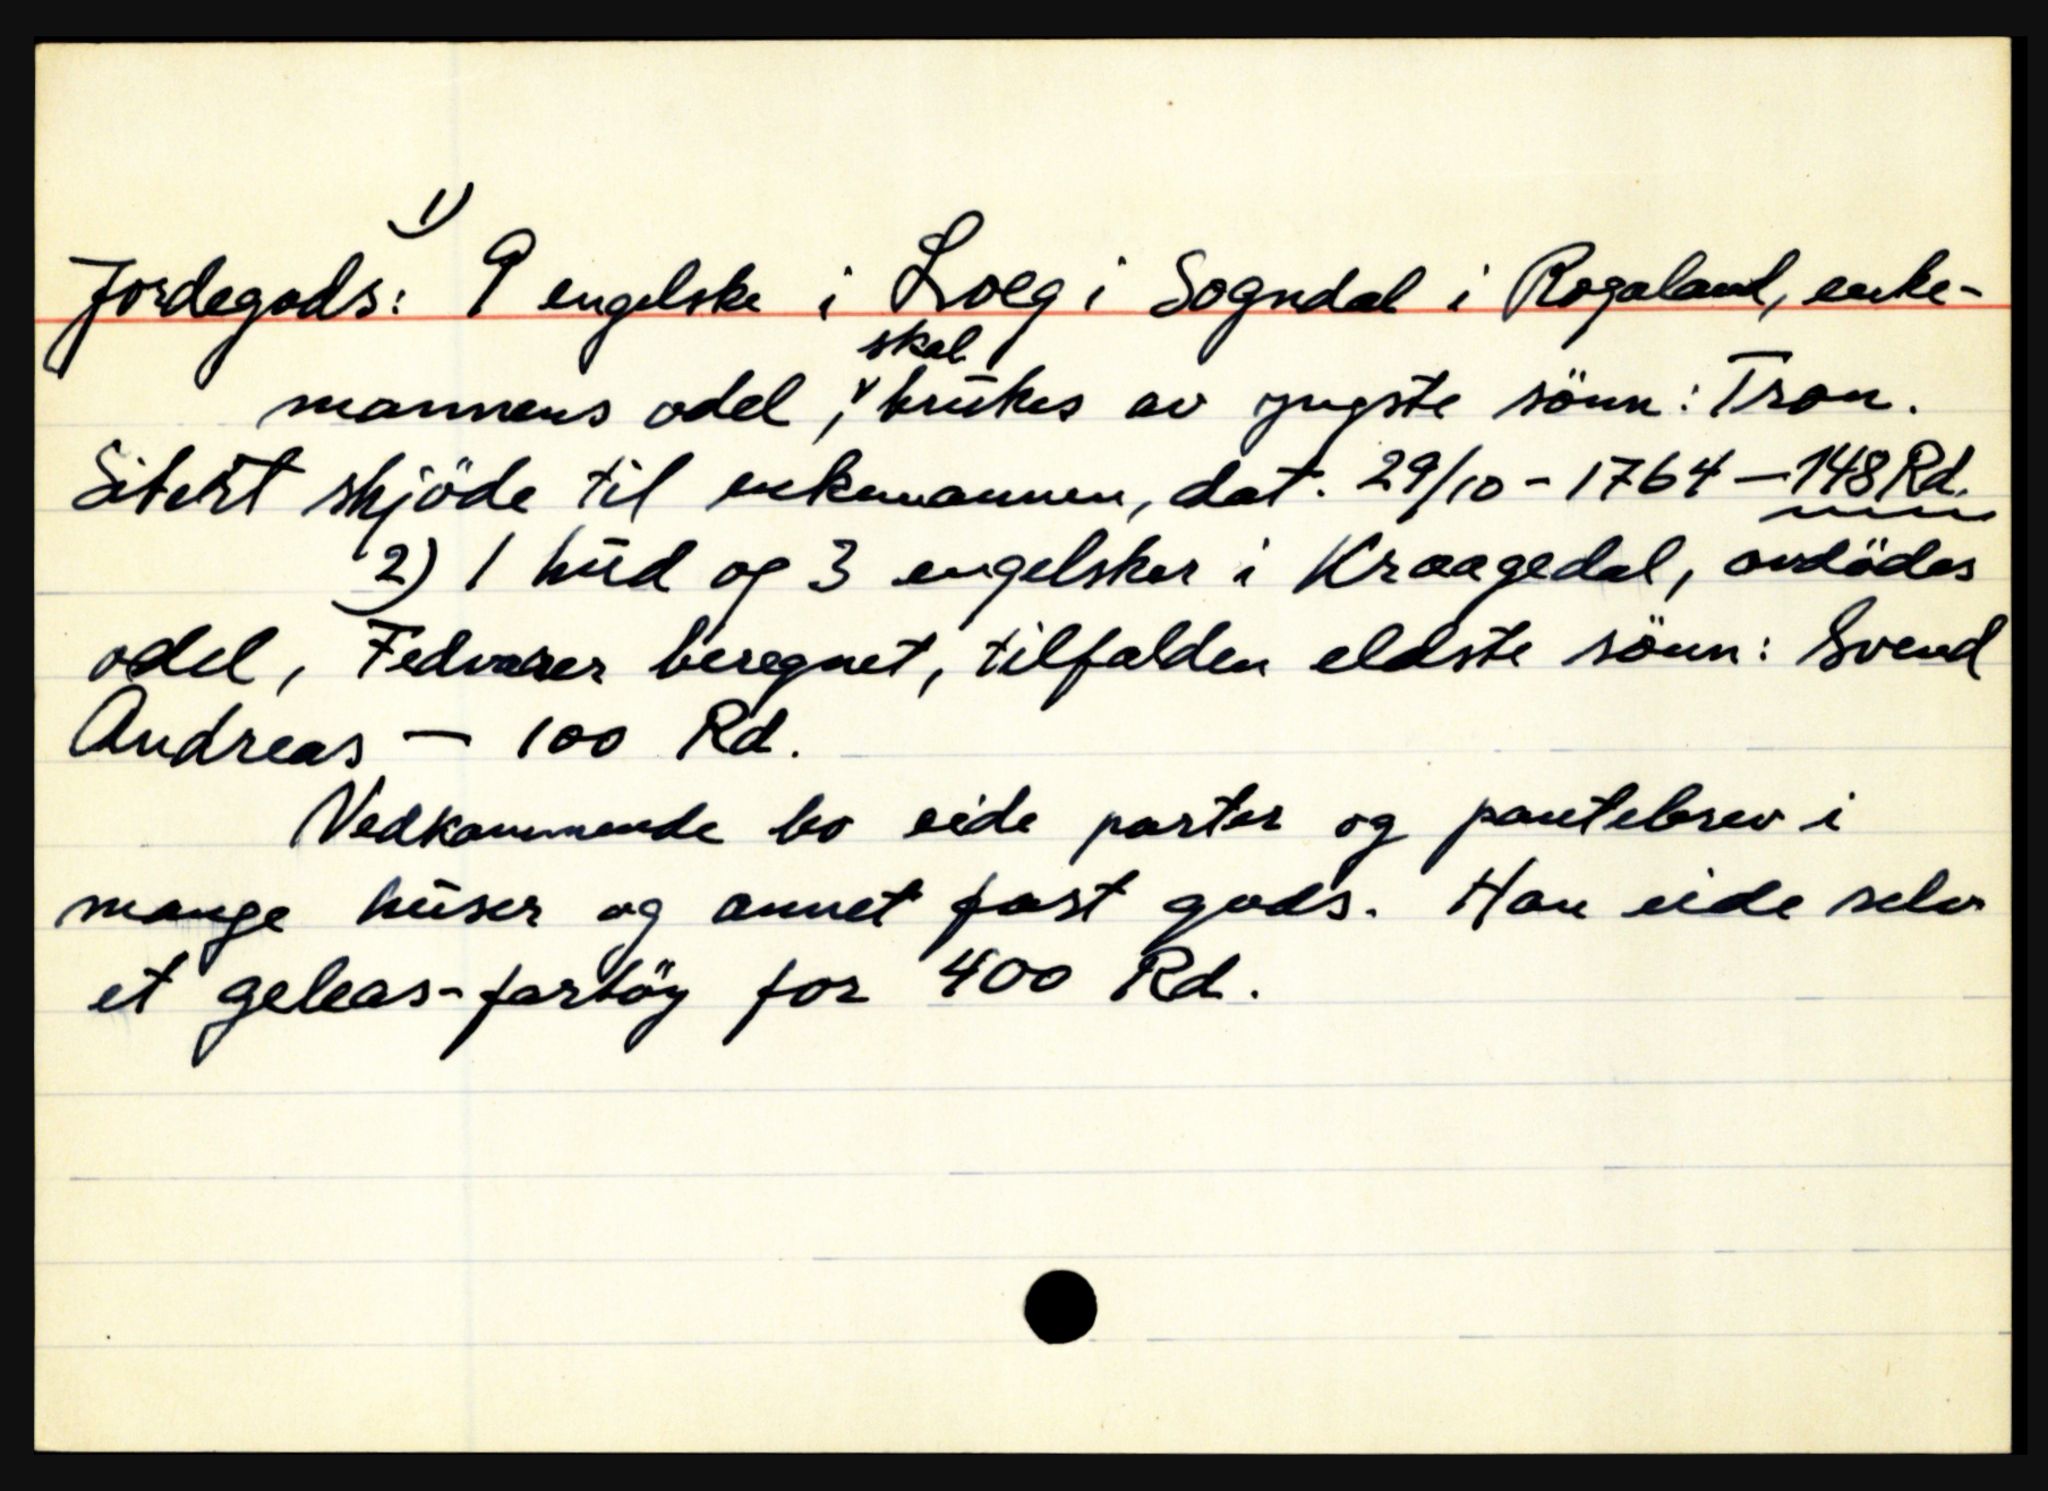 Jordegods: 1) 9 engelske i Loeg i Sogndal i Rogaland, enke-
mannens odel, skal brukes av yngste sönn: Tron.
Sitert skjöde til enkemannen, dat. 29/10-1764 — 148 Rd.
2) 1 hud og 3 engelsker i Kraagedal, avdödes
odel, Fedvarer beregnet, tilfalden eldste sönn: Svend
Andreas — 100 Rd.
Vedkommende bo eide parter og pantebrev i
mange huser og annet fast gods. Han eide selv
et geleas-fartöy for 400 Rd.